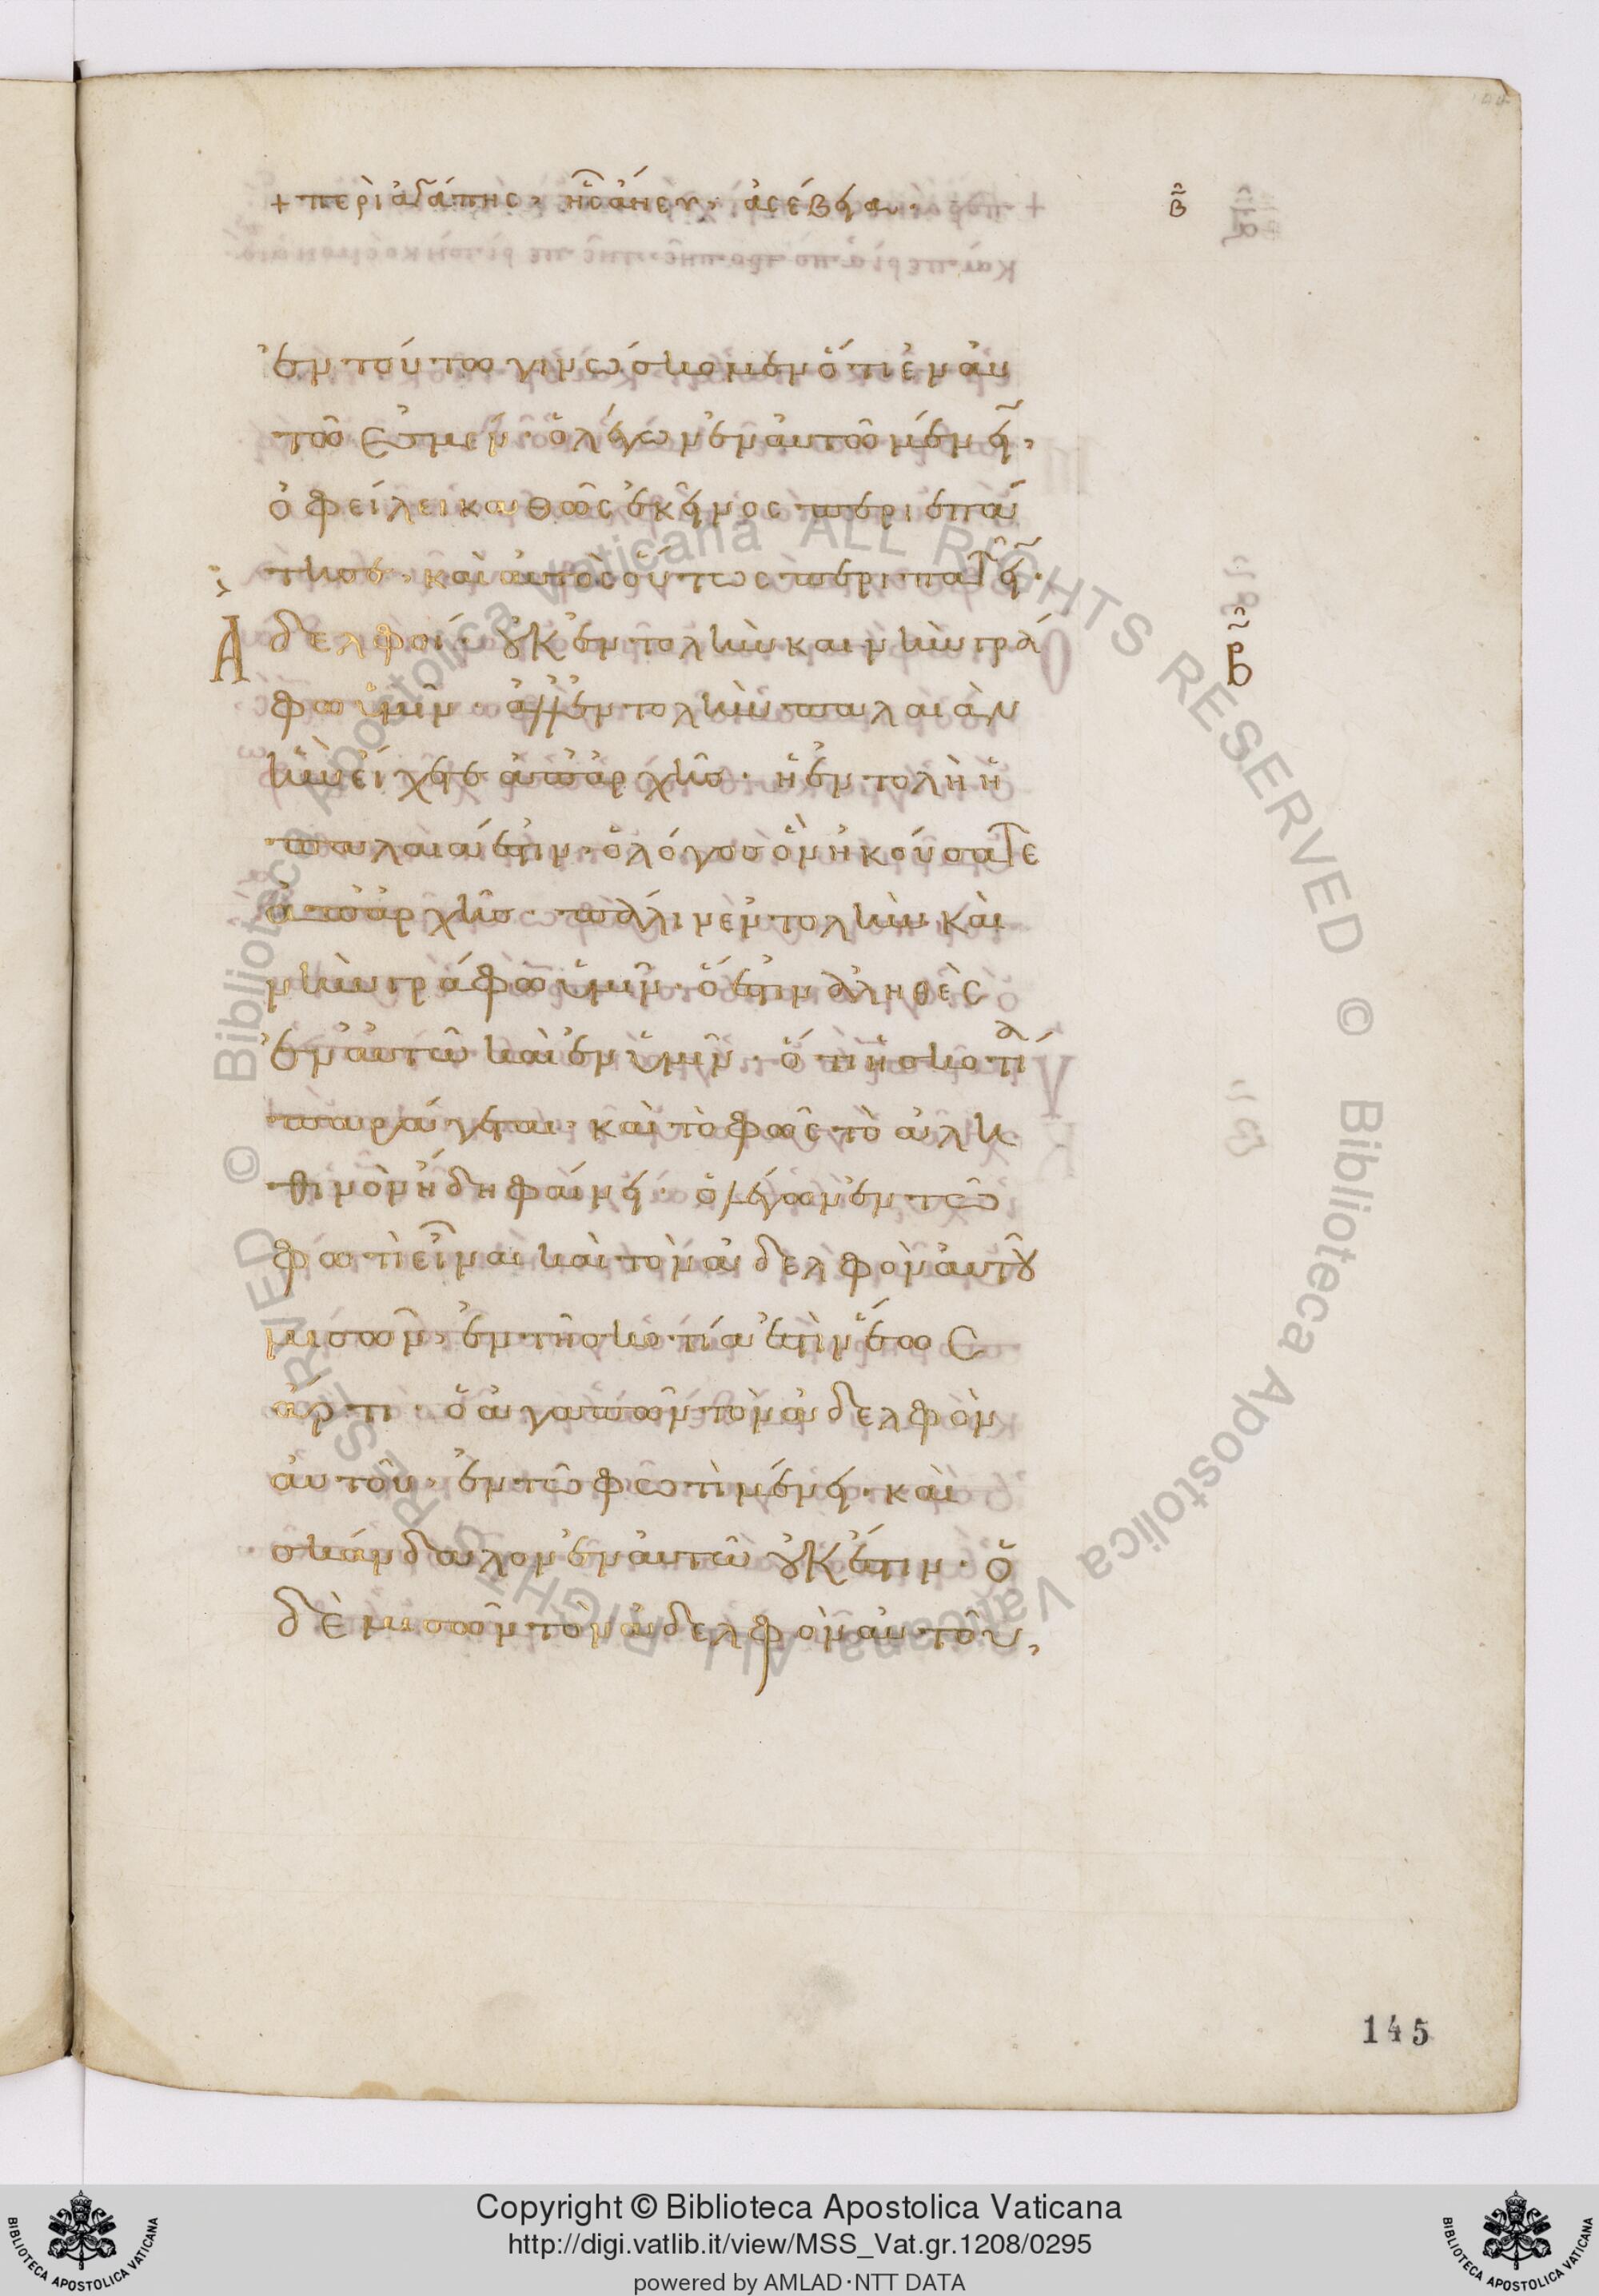 + περὶ ἀγάπης, ἧς ἄνευ, ἀσέβεια.
β
ἐν τούτω γινώσκομεν ὅτι ἐν αὐ
τῶ ἐσμέν· ὁ λέγων ἐν αὐτῶ μένειν,
ὀφείλει καθὼς ἐκεῖνος περιεπά
τησε, καὶ αὐτὸς οὕτως περιπατεῖν·
Ἀδελφοί οὐκ ἐντολὴν καινὴν γρά
φω ὑμῖν· ἀλλ' ἐντολὴν παλαιὰν
ἣν εἴχετε ἀπ' ἀρχῆς· ἡ ἐντολὴ ἡ
παλαιά ἐστιν· ὁ λόγος ὃν ἠκούσατε
ἀπ' ἀρχῆς· πάλιν ἐντολὴν και
νὴν γράφω ὑμῖν· ὅ ἐστιν ἀληθὲς
ἐν αὐτῶ καὶ ἐν ὑμῖν· ὅτι ἡ σκοτία
παράγεται· καὶ τὸ φῶς τὸ ἀλη
θινὸν ἤδη φαίνει· ὁ λέγων ἐν τῶ
φωτὶ εἶναι καὶ τὸν ἀδελφὸν αὐτοῦ
μισῶν, ἐν τῆ σκοτία ἐστὶν ἕως
ἄρτι· ὁ ἀγαπῶν τὸν ἀδελφὸν
αὐτοῦ· ἐν τῶ φωτὶ μένει· καὶ
σκάνδαλον ἐν αὐτῶ οὐκ ἔστιν· ὁ
δὲ μισῶν τὸν ἀδελφὸν αὐτοῦ,
145
Copyright © Biblioteca Apostolica Vaticana
http://digi.vatlib.it/view/MSS_Vat.gr.1208/0295
powered by AMLAD·NTT DATA
BIBLIOTECA APOSTOLICA VATICANA
BIBLIOTECA APOSTOLICA VATICANA
© Biblioteca Apostolica Vaticana ALL RIGHTS RESERVED
© Biblioteca Apostolica Vaticana ALL RIGHTS RESERVED